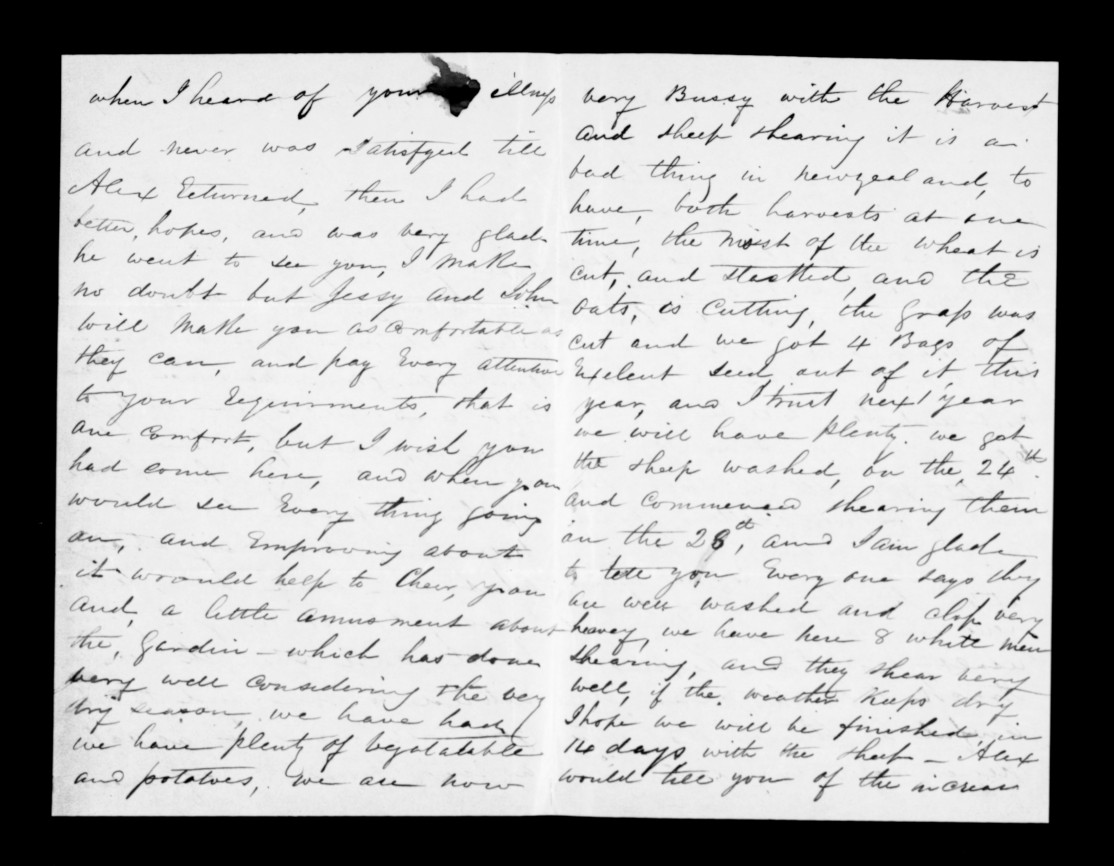 when I heard of your illness
and never was Satisfyed till
Alex Returned, then I had
better, hopes, and was very glad
he went to see you, I make
no doubt but Jessy and John
will make you as comfortable as
they can, and pay Every attention
to your Requirments, that is
one comfort, but I wish you
had come here, and when you
would see Every thing going
on, and Emprooving about
it would help to Cheer, you
and, a little amusment about
the, Gardin - which has done
very well considering the vey
dry season, we have had
we have plenty of vegatabble
and potatoes, We are now
very Bussy with the Harvest
and sheep shearing it is a
bad thing in newzealand, to
have, both harvests at one
time, the most of the wheat is
cut, and stacked, and the
oats, is cutting, the Grass was
cut and we got 4 Bags of
Exelent seed out of it, this
year, and I trust next year
we will have plenty. we got
the sheep washed, on the, 24th
and commenced shearing them
on the 28th, and I am glad
to tell you Every one says they
are well washed and clip very
heavey, we have here 8 white men
shearing, and they shear very
well, if the weather keeps dry
I hope we will be finished in
14 days with the sheep - Alex
would tell you of the increas